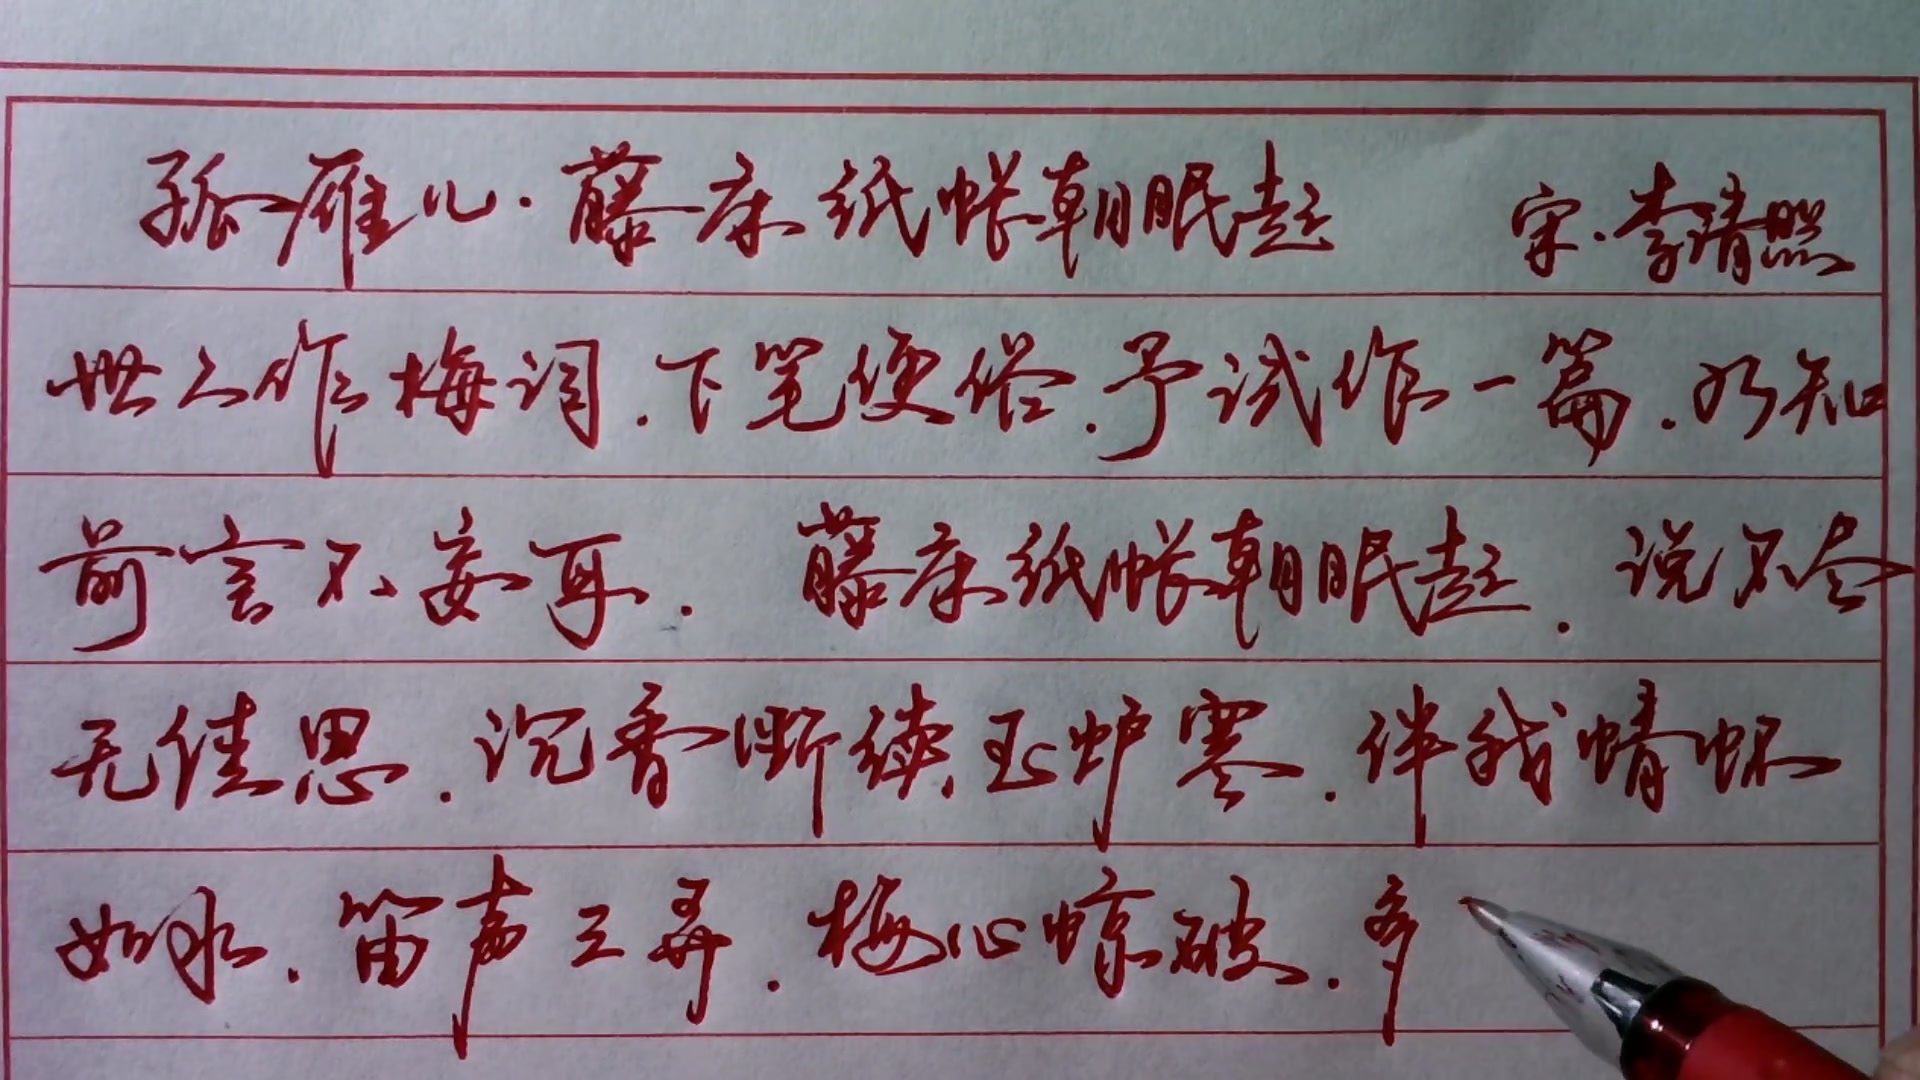 孤雁儿·藤床纸帐朝眠起 宋·李清照
世人作梅词.下笔便俗.予试作一篇.乃知
前言不妄耳. 藤床纸帐朝眠起.说不尽
无佳思.沉香断续玉炉寒.伴我情怀
如水.笛声三弄.梅心惊破.多